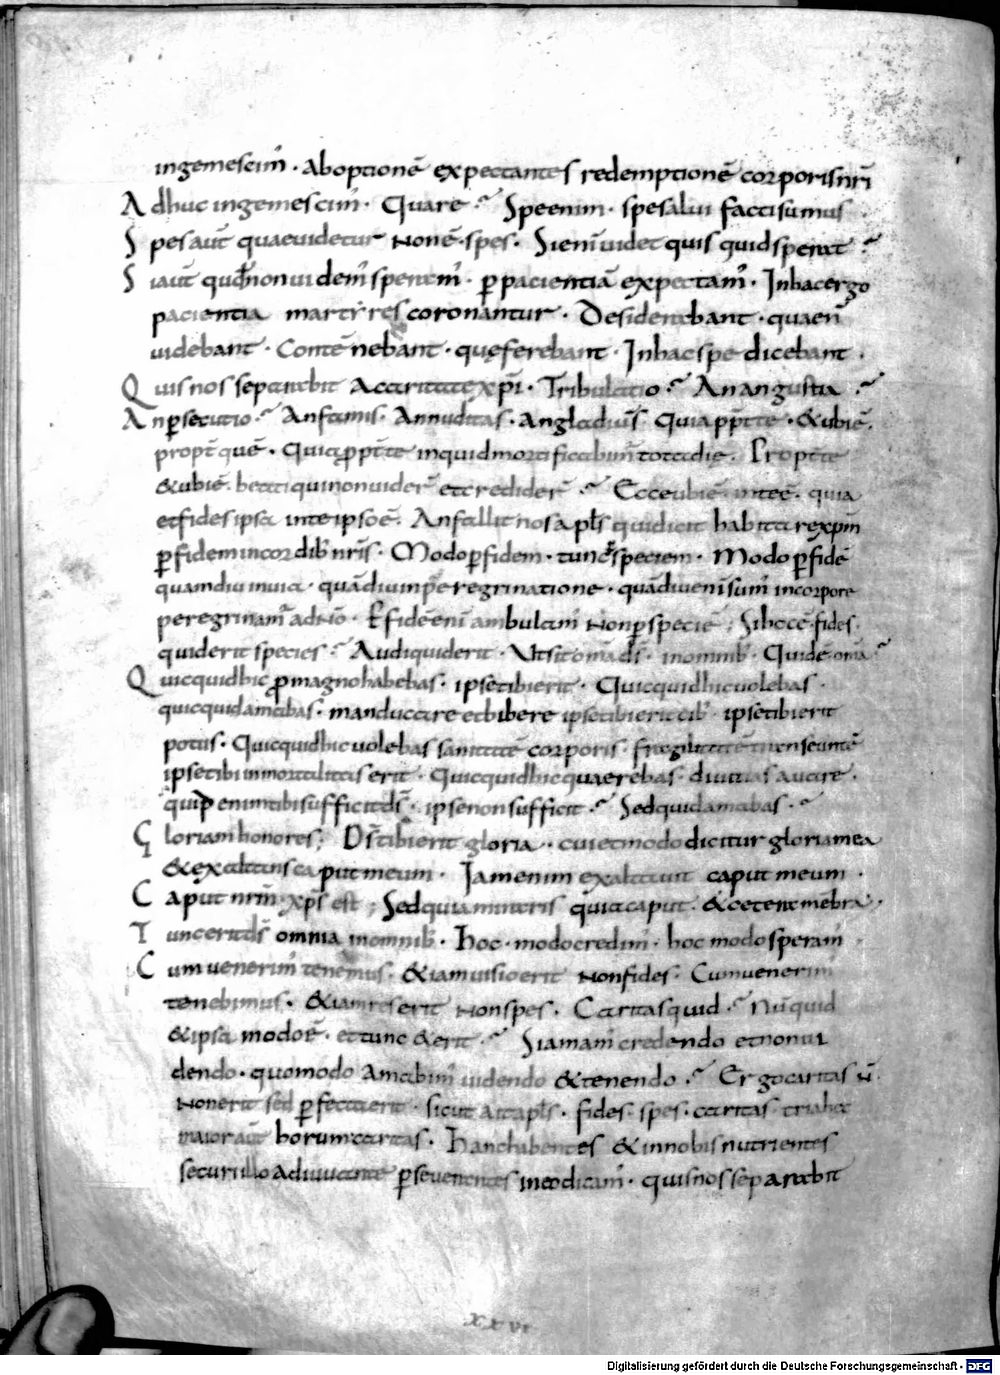 ingemescim᾽ · Aboptionē expectantes redemptionē corporis nr̄i
Adhuc ingemescim᾽ · Quare ? Spe enim · spe salui facti sumus
Spes aut̄ quae uidetur non ē · spes · Si eni uidet quis quid sperat ?
Si aut̄ quod non uidem᾽ speram᾽ · ꝑ pacientiā expectam᾽ · In hac ergo
pacientia martyres coronantur · Desiderabant · quae n̄
uidebant · Contēnebant · quę ferebant · In hac spe dicebant ·
Quis nos separabit a caritate xp̄i · Tribulatio ? An angustia ?
An ꝑsecutio ? An famis · An nuditas · An gladius̄ · Quia ꝓpt̄ te · & ubi ē ·
propt̄ quē · Quia ꝓpt̄ te inquid mortificabim᾽ tota die · Propt̄ te
& ubi ē · beati qui non uider̄ et credider̄ ? Ecce ubi ē · in te ē · quia
et fides ipsa inte ipso ē · An fallit nos apl̄s qui dicit habitare xp̄m
ꝑ fidem in cordib᾽ nr̄is · Modo ꝑ fidem · tunc ꝑ speciem · Modo ꝑ fidē
quamdiu in uia · quādiu in peregrinatione · quādiu eni sum᾽ in corpore
peregrinam᾽ a dn̄o · Per fidē eni ambulam᾽ non ꝑ speciē ; Si hoc ē · fides ·
quid erit species ? Audi quid erit · Ut sit omā ds̄ · in omnib᾽ · Quid ē omā ?
Quicquid hic ꝓ magno habebas · ipse tibi erit · Quicquid hic uolebas ·
quicquid amabas · manducare et bibere ipse tibi erit cib᾽ · ipse tibi erit
potus · Quicquid hic uolebas sanitatē corporis · fragilitatē transeuntē
ipse tibi inmortalitas erit · Quicquid hic quaerebas · diuitias auare ·
quid enim tibi sufficit ds̄ · ipse non sufficit ? Sed quid amabas ·?
Gloriam honores ; Ds̄ tibi erit gloria · cui et modo dicitur gloria mea
& exaltans caput meum · Iam enim exaltauit caput meum ·
Caput nrm̄ · xp̄s est ; Sed quia miraris quia caput · & cetera mēbra ·
Tunc erit ds̄ omnia in omnib᾽ · Hoc · modo credim᾽ · hoc modo speram᾽
Cum uenerim᾽ tenemus · & iam uisio erit non fides · Cum uenerim᾽
tenebimus · & iam res erit non spes · Caritas quid ? Nūquid
& ipsa modo ē · et tunc & erit ·? Si amam᾽ credendo et non ui
dendo · quomodo amabim᾽ uidendo & tenendo ? Ergo caritas n̄
non erit sed ꝑfecta erit · sicut ait apl̄s · fides · spes · caritas · tria hęc
maior aut̄ horum caritas · Hanc habentes & in nobis nutrientes
securi illo adiuuante ꝑseuerantes in eo dicam᾽ · quis nos separabit
xxvi
Digitalisierung gefördert durch die Deutsche Forschungsgemeinschaft - DFG